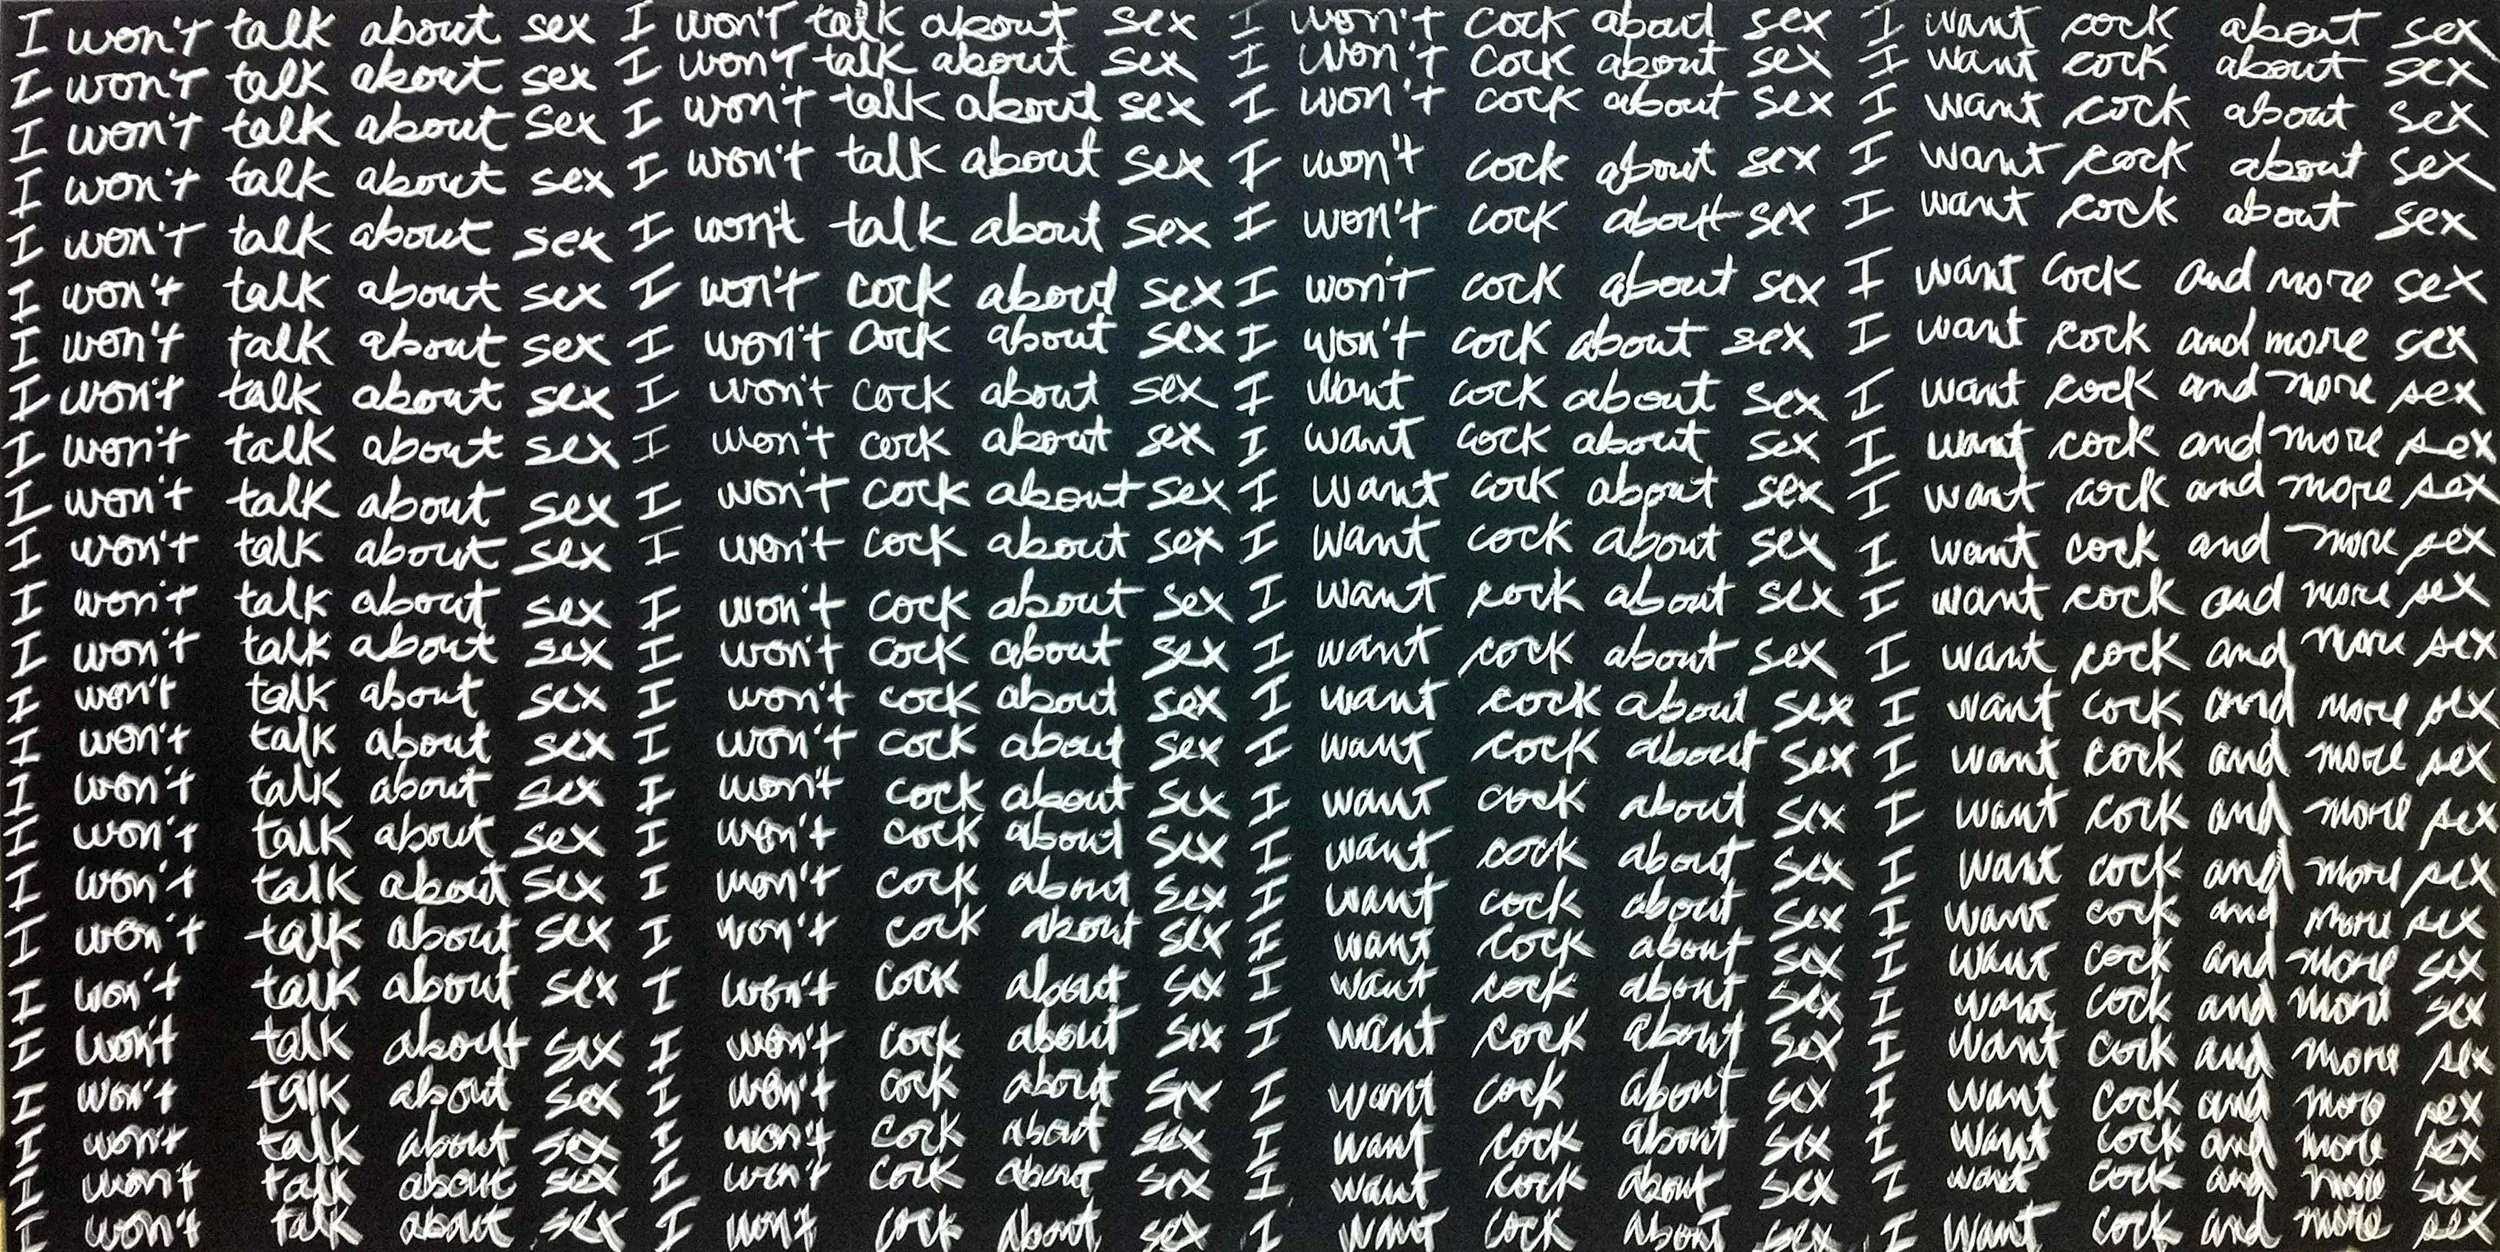 I won't talk about sex
I won't talk about sex
I won't talk about sex
I won't talk about sex
I won't talk about sex
I won't talk about sex
I won't talk about sex
I won't talk about sex
I won't talk about sex
I won't talk about sex
I won't talk about sex
I won't talk about sex
I won't talk about sex
I won't talk about sex
I won't talk about sex
I won't talk about sex
I won't talk about sex
I won't talk about sex
I won't talk about sex
I won't talk about sex
I won't talk about sex
I won't talk about sex
I won't talk about sex
I won't talk about sex
I won't talk about sex
I won't talk about sex
I won't talk about sex
I won't talk about sex
I won't talk about sex
I won't talk about sex
I won't cock about sex
I won't cock about sex
I won't cock about sex
I won't cock about sex
I won't cock about sex
I won't cock about sex
I won't cock about sex
I won't cock about sex
I won't cock about sex
I won't cock about sex
I won't cock about sex
I won't cock about sex
I won't cock about sex
I won't cock about sex
I won't cock about sex
I won't cock about sex
I won't cock about sex
I won't cock about sex
I won't cock about sex
I won't cock about sex
I won't cock about sex
I won't cock about sex
I won't cock about sex
I won't cock about sex
I won't cock about sex
I won't cock about sex
I won't cock about sex
I want cock about sex
I want cock about sex
I want cock about sex
I want cock about sex
I want cock about sex
I want cock about sex
I want cock about sex
I want cock about sex
I want cock about sex
I want cock about sex
I want cock about sex
I want cock about sex
I want cock about sex
I want cock about sex
I want cock about sex
I want cock about sex
I want cock about sex
I want cock about sex
I want cock about sex
I want cock about sex
I want cock about sex
I want cock about sex
I want cock about sex
I want cock and more sex
I want cock and more sex
I want cock and more sex
I want cock and more sex
I want cock and more sex
I want cock and more sex
I want cock and more sex
I want cock and more sex
I want cock and more sex
I want cock and more sex
I want cock and more sex
I want cock and more sex
I want cock and more sex
I want cock and more sex
I want cock and more sex
I want cock and more sex
I want cock and more sex
I want cock and more sex
I want cock and more sex
I want cock and more sex